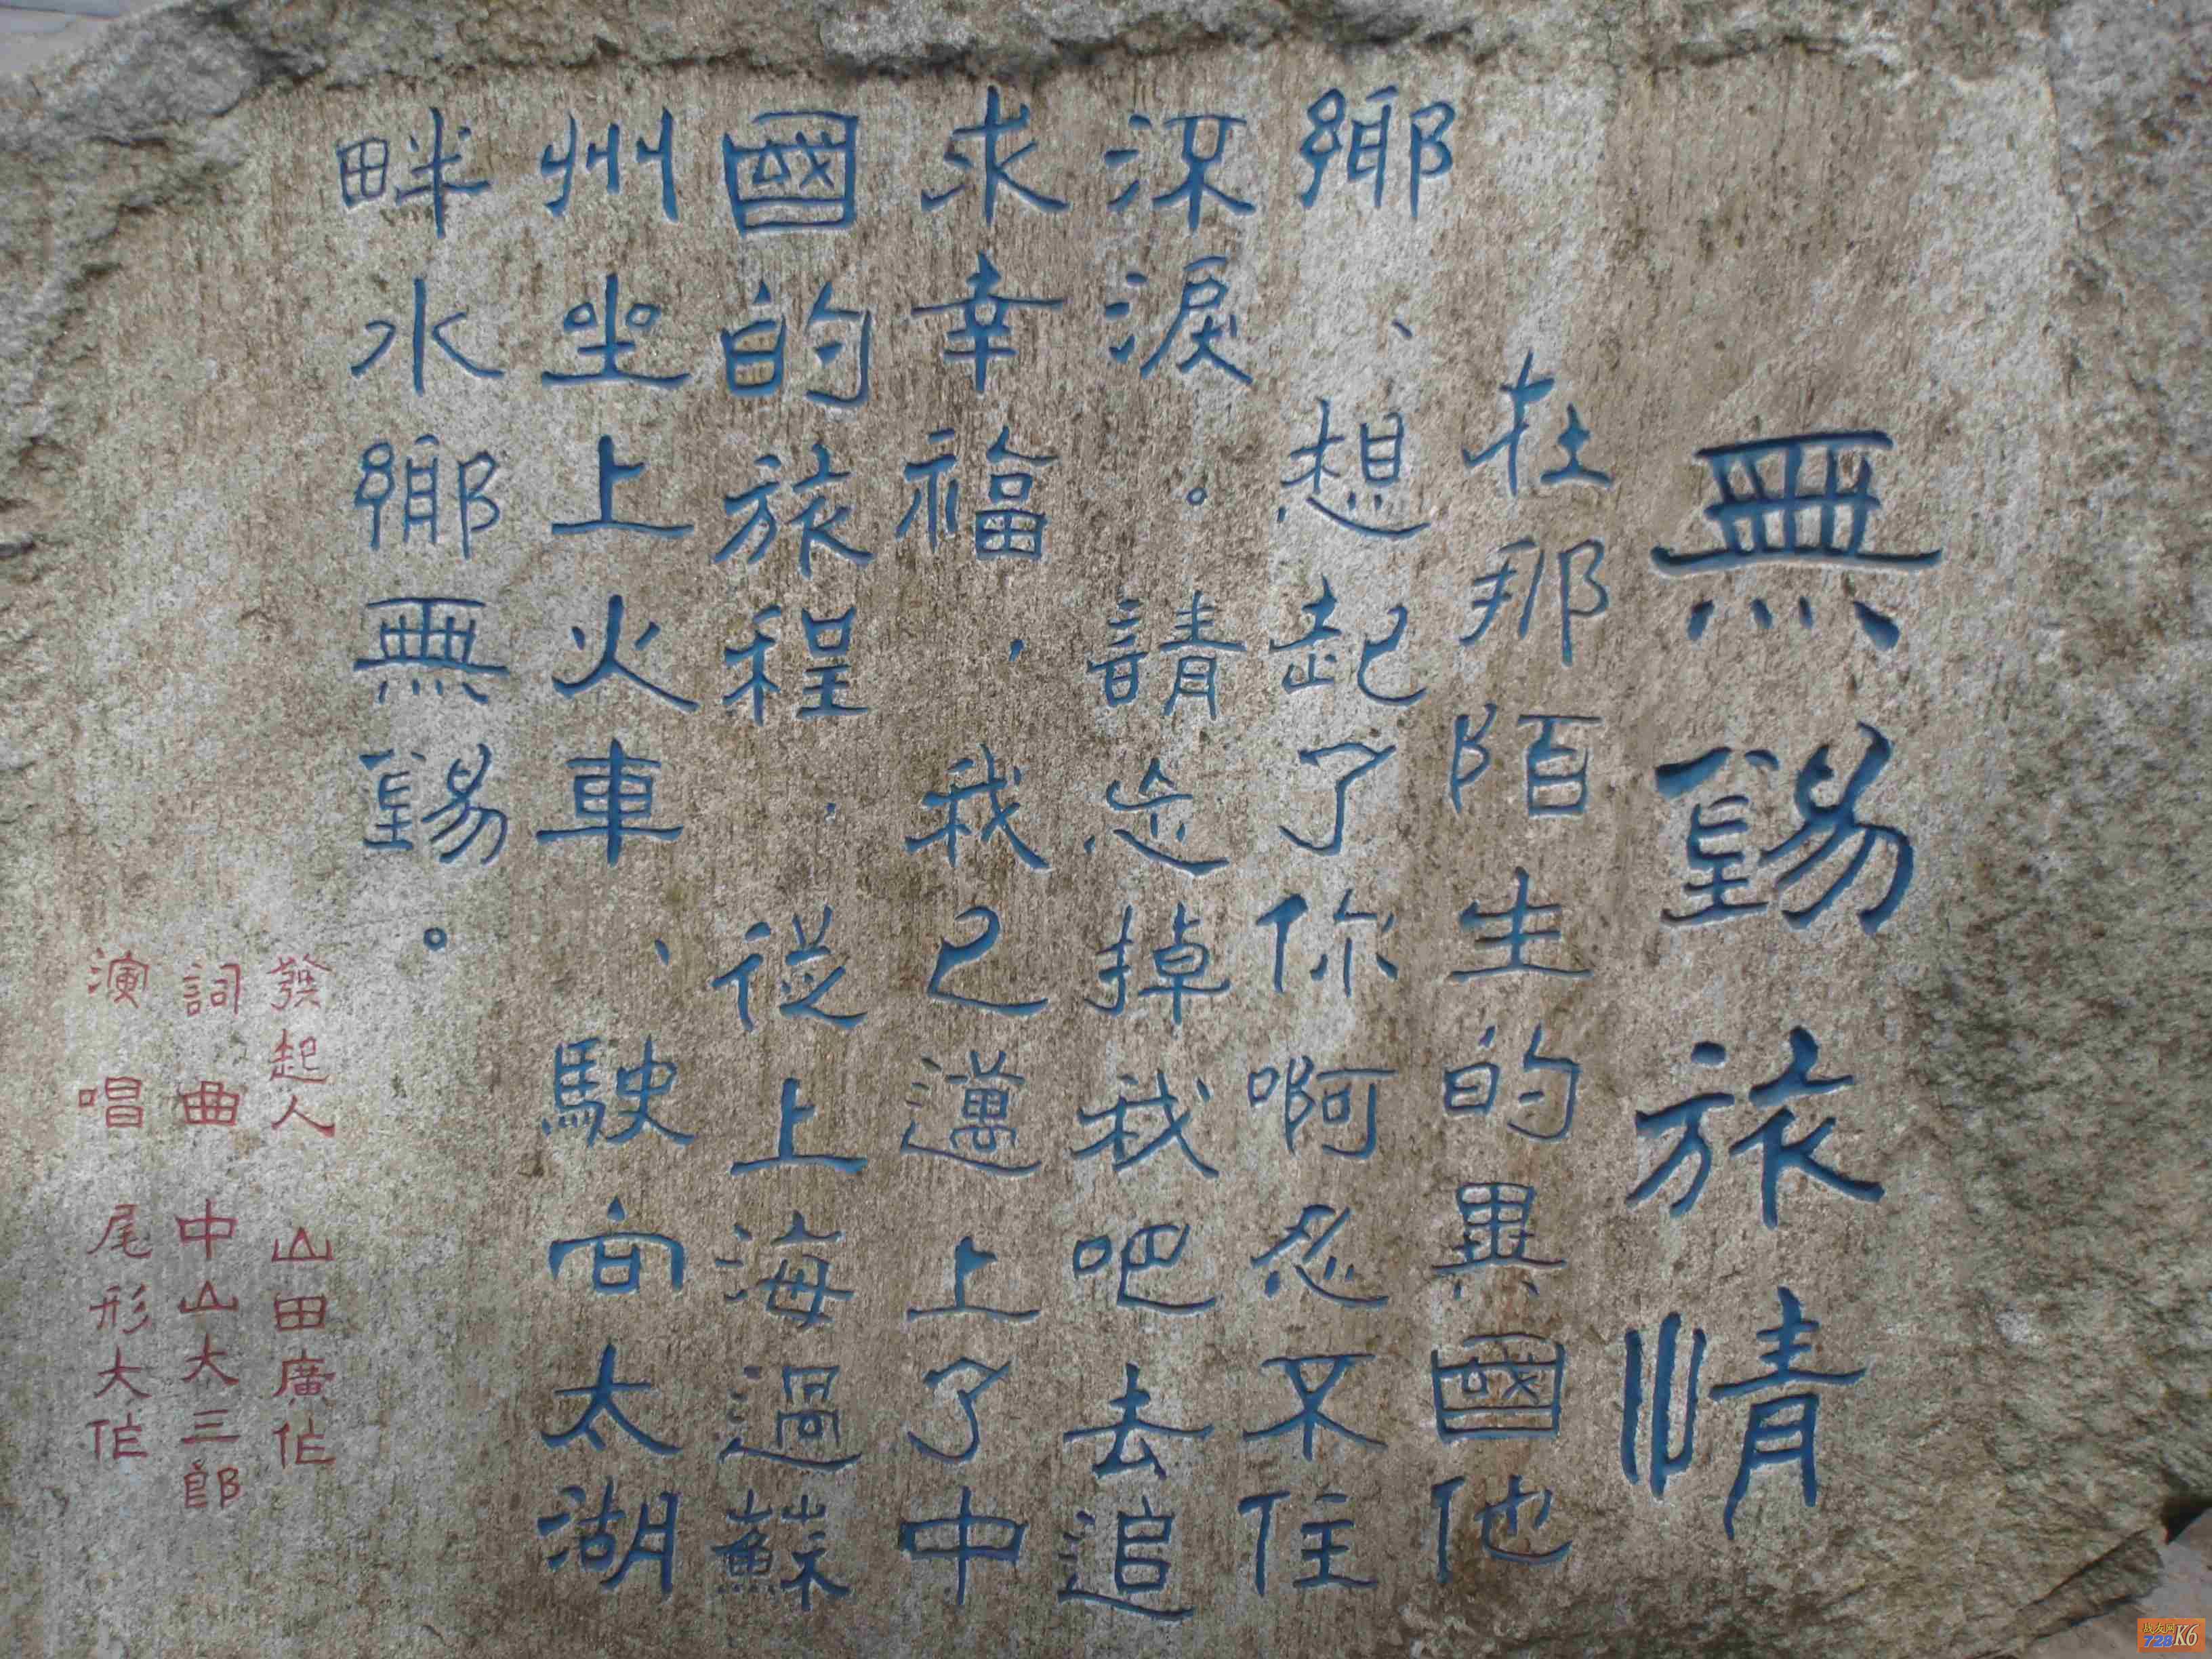 無錫旅情
在那陌生的異國他
鄉、想起了你啊忍不住
深淚。請忘掉我吧去追
求幸福，我已邁上了中
國的旅程，從上海過蘇
州坐上火車、駛向太湖
畔水鄉無錫。
發起人 山田廣作
詞曲 中山大三郎
演唱 尾形大作
战友网
728K6